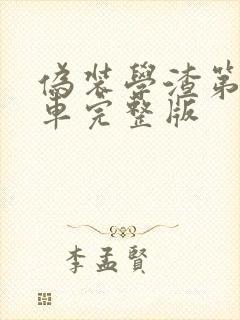 偽裝學渣第
車完整版
李孟賢